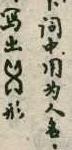 下词中用为人名，
写出形